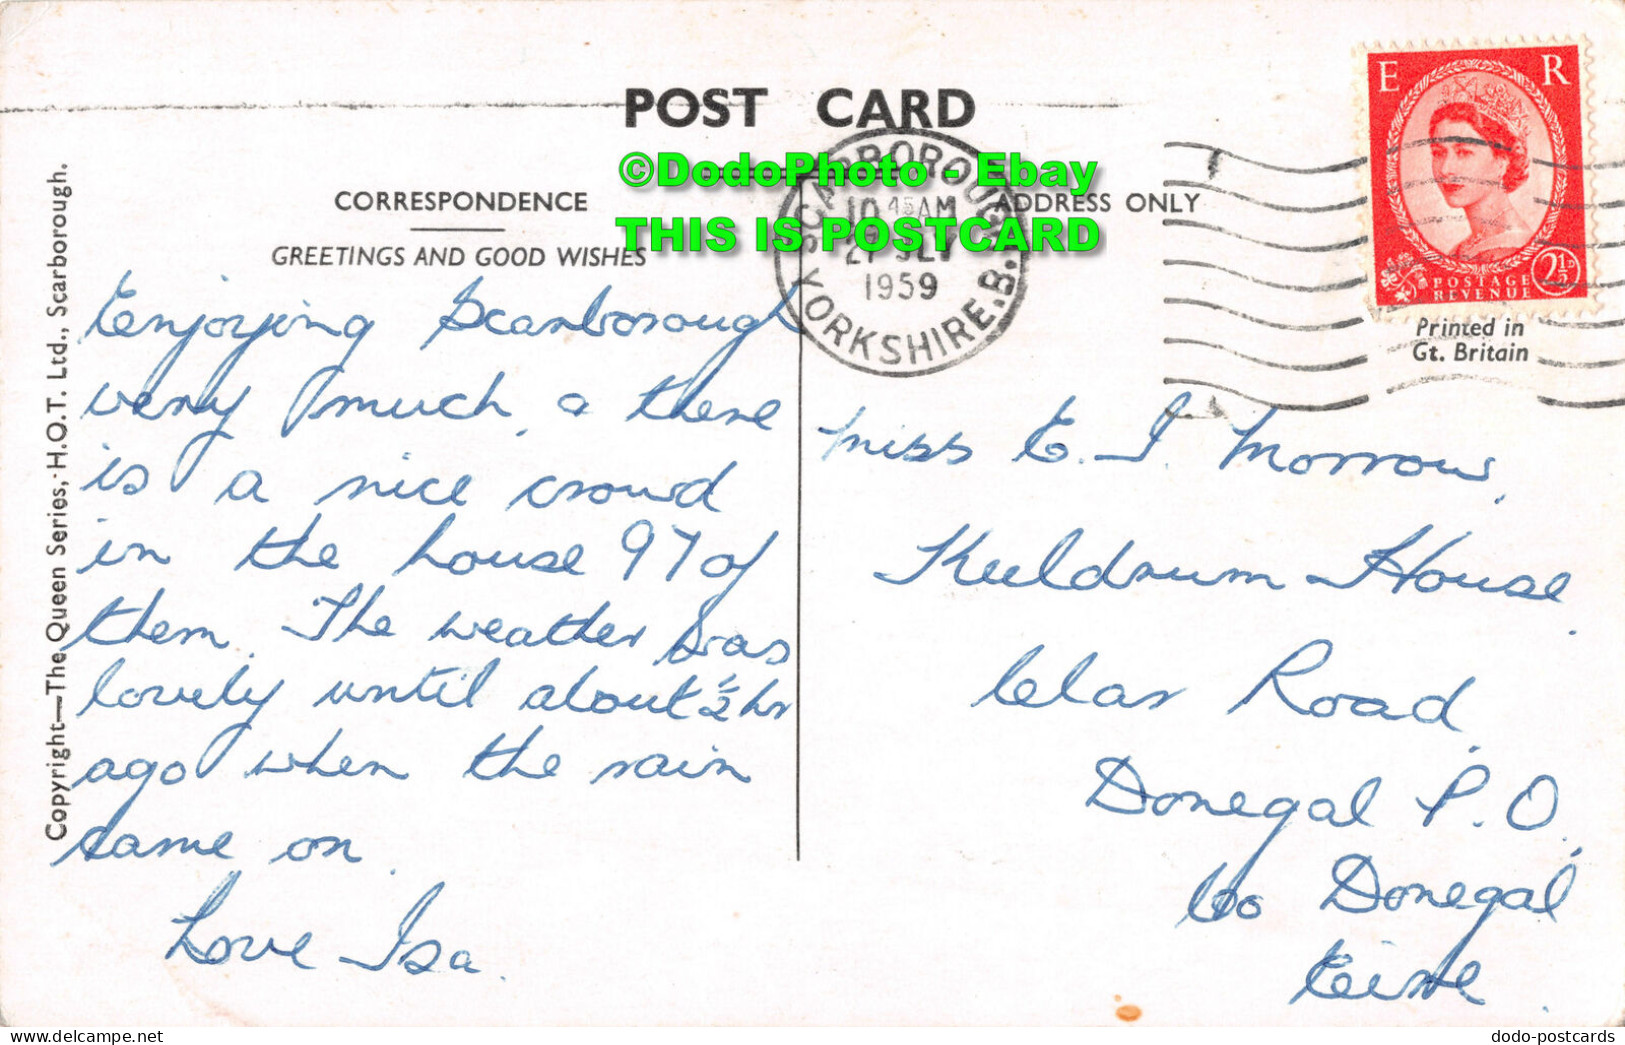 POST CARD
©DodoPhoto - Ebay
THIS IS POSTCARD
CORRESPONDENCE
GREETINGS AND GOOD WISHES
ADDRESS ONLY
SCARBOROUGH
10 45 AM
1959
YORKSHIRE.B.
E R
POSTAGE
REVENUE
2½D
Printed in
Gt. Britain
Copyright—The Queen Series, H.Q.T. Ltd., Scarborough.
Enjoying Scarborough
very much, & there
is a nice crowd
in the house 97 of
them. The weather was
lovely until about ½ hr
ago when the rain
came on
Love Isa.
Miss E. I Morrow,
Kuldrum House.
Clar Road.
Donegal P.O.
Co Donegal
Eire.
dodo-postcards